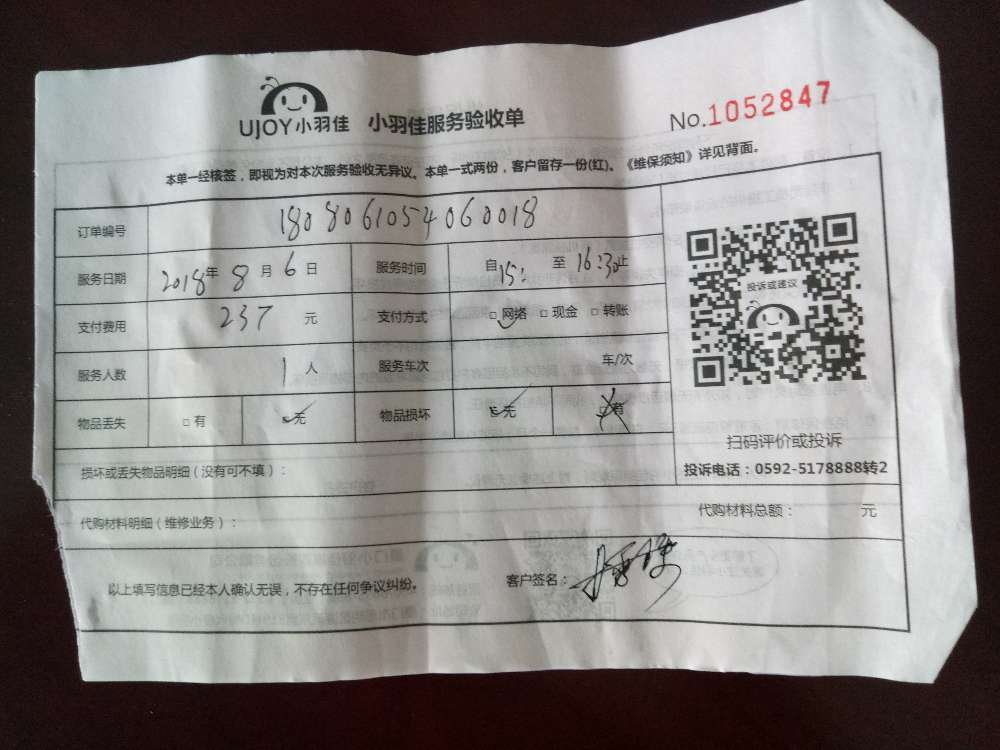 UJOY小羽佳 小羽佳服务验收单 No.1052847
本单一经核签，即视为对本次服务验收无异议。本单一式两份，客户留存一份(红)。《维保须知》详见背面。
订单编号 1808061054060018
服务日期 2018年8月6日 服务时间 自15: 至16:30止
支付费用 237元 支付方式 □网络 □现金 □转账
服务人数 1人 服务车次 车/次
物品丢失 □有 □无 物品损坏 □无 □有
投诉或建议
扫码评价或投诉
投诉电话：0592-5178888转2
损坏或丢失物品明细（没有可不填）：
代购材料明细（维修业务）： 代购材料总额： 元
以上填写信息已经本人确认无误，不存在任何争议纠纷。 客户签名：